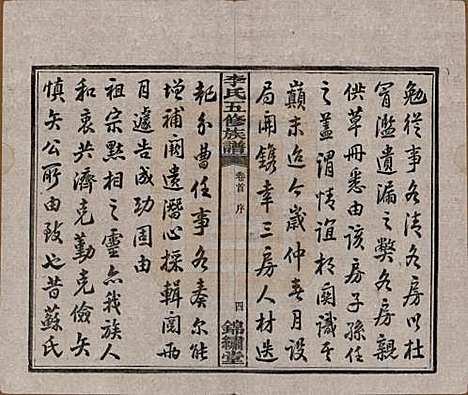 勉從事名清各房以杜
冒濫遺漏之弊各房親
供草冊悉由該房子孫任
之蓋謂情誼相關識其
顛末迨今歲仲春月設
局開鐫幸三房人材迭
李氏五修族譜
卷首 序
四
錦繡堂
起分曹任事各奏尔能
增補闕遺潛心採輯閱兩
月遽告成功固由
祖宗默相之靈亦我族人
和衷共濟克勤克儉矢
慎矢公所由致也昔蘇氏